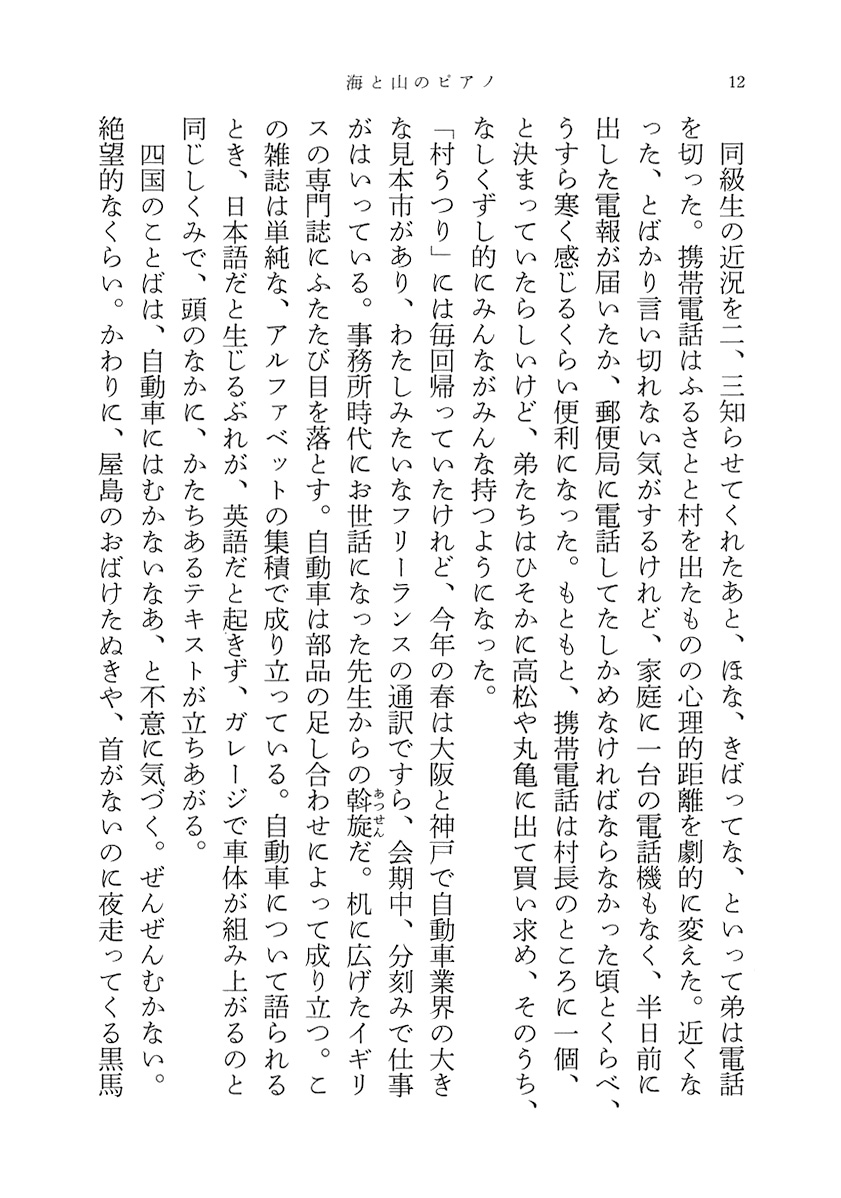 海と山のピアノ
12
同級生の近況を二、三知らせてくれたあと、ほな、きばってな、といって弟は電話
を切った。携帯電話はふるさとと村を出たものの心理的距離を劇的に変えた。近くな
った、とばかり言い切れない気がするけれど、家庭に一台の電話機もなく、半日前に
出した電報が届いたか、郵便局に電話してたしかめなければならなかった頃とくらべ、
うすら寒く感じるくらい便利になった。もともと、携帯電話は村長のところに一個、
と決まっていたらしいけど、弟たちはひそかに高松や丸亀に出て買い求め、そのうち、
なしくずし的にみんながみんな持つようになった。
「村うつり」には毎回帰っていたけれど、今年の春は大阪と神戸で自動車業界の大き
な見本市があり、わたしみたいなフリーランスの通訳ですら、会期中、分刻みで仕事
がはいっている。事務所時代にお世話になった先生からの斡旋だ。机に広げたイギリ
あっせん
スの専門誌にふたたび目を落とす。自動車は部品の足し合わせによって成り立つ。こ
の雑誌は単純な、アルファベットの集積で成り立っている。自動車について語られる
とき、日本語だと生じるぶれが、英語だと起きず、ガレージで車体が組み上がるのと
同じしくみで、頭のなかに、かたちあるテキストが立ちあがる。
四国のことばは、自動車にはむかないなあ、と不意に気づく。ぜんぜんむかない。
絶望的なくらい。かわりに、屋島のおばけたぬきや、首がないのに夜走ってくる黒馬